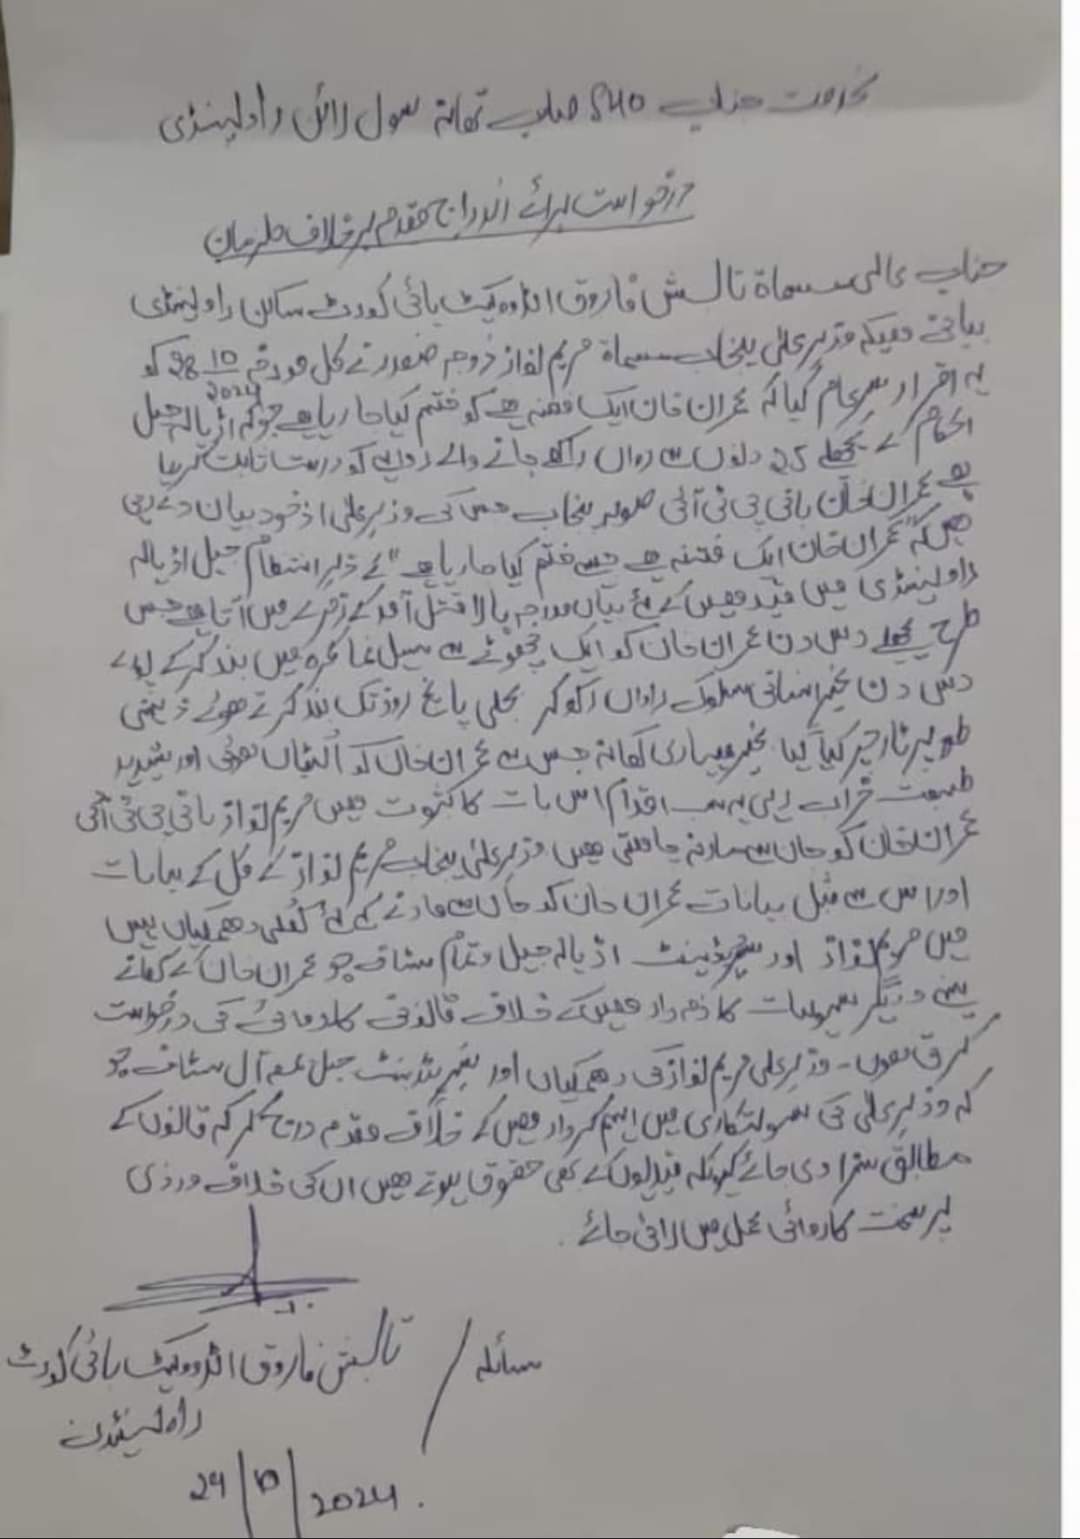 بخدمت جناب SHO صاحب تھانہ سول لائن راولپنڈی
درخواست برائے اندراج مقدمہ برخلاف ملزمان
جناب عالی مسماۃ تابش فاروق ایڈووکیٹ ہائی کورٹ ساکن راولپنڈی
وزیر اعلیٰ پنجاب مسماۃ مریم نواز زوجہ صفدر نے کل مورخہ 28 10 2024 کو
یہ اقرار سرعام کیا کہ عمران خان ایک فتنہ ہے کو ختم کیا جا رہا ہے جو کہ اڈیالہ جیل
حکام کے پچھلے 25 دنوں سے رواں رکھے جانے والے رویے کو درست ثابت کر رہا
ہے عمران خان بانی پی ٹی آئی صوبہ پنجاب جس کی وزیر اعلیٰ از خود بیان دے رہی
ہیں کہ "عمران خان ایک فتنہ ہے جسے ختم کیا جا رہا ہے" کے زیر انتظام جیل اڈیالہ
راولپنڈی میں قید ہیں کے لئے بیان مندرجہ بالا قتل عمد کے زمرے میں آتا ہے جس
طرح پچھلے دس دن عمران خان کو ایک چھوٹے سے سیل نما کمرہ میں بند کر کے پورے
دس دن غیر انسانی سلوک رواں رکھ کر بجلی پانچ روز تک بند کرتے ہوئے ذہنی
طور پر ٹارچر کیا گیا غیر معیاری کھانہ جس سے عمران خان کو الٹیاں ہوئی اور شدید
طبیعت خراب رہی یہ سب اقدام اس بات کا ثبوت ہیں مریم نواز بانی پی ٹی آئی
عمران خان کو جان سے مارنہ چاہتی ہیں وزیر اعلیٰ پنجاب مریم نواز کے کل کے بیانات
اور اس سے قبل بیانات عمران خان کو جان سے مارنے کے لئے کھلی دھمکیاں ہیں
میں مریم نواز اور سپرڈینٹ اڈیالہ جیل و تمام سٹاف جو عمران خان کے کھانے
پینے و دیگر سہولیات کا ذمہ دار ہیں کے خلاف قانونی کاروائی کی درخواست
کرتی ہوں - وزیر اعلیٰ مریم نواز کی دھمکیاں اور سپرنٹنڈنٹ جیل بمعہ آل سٹاف جو
کہ وزیر اعلیٰ کی سہولتکاری میں اہم کردار ہیں کے خلاف مقدمہ درج کر کہ قانون کے
مطابق سزا دی جائے کیونکہ قیدیوں کے بھی حقوق ہوتے ہیں ان کی خلاف ورزی
پر سخت کاروائی عمل میں لائی جائے .
سائلہ / تابش فاروق ایڈووکیٹ ہائی کورٹ
راولپنڈی
29/10/2024 .